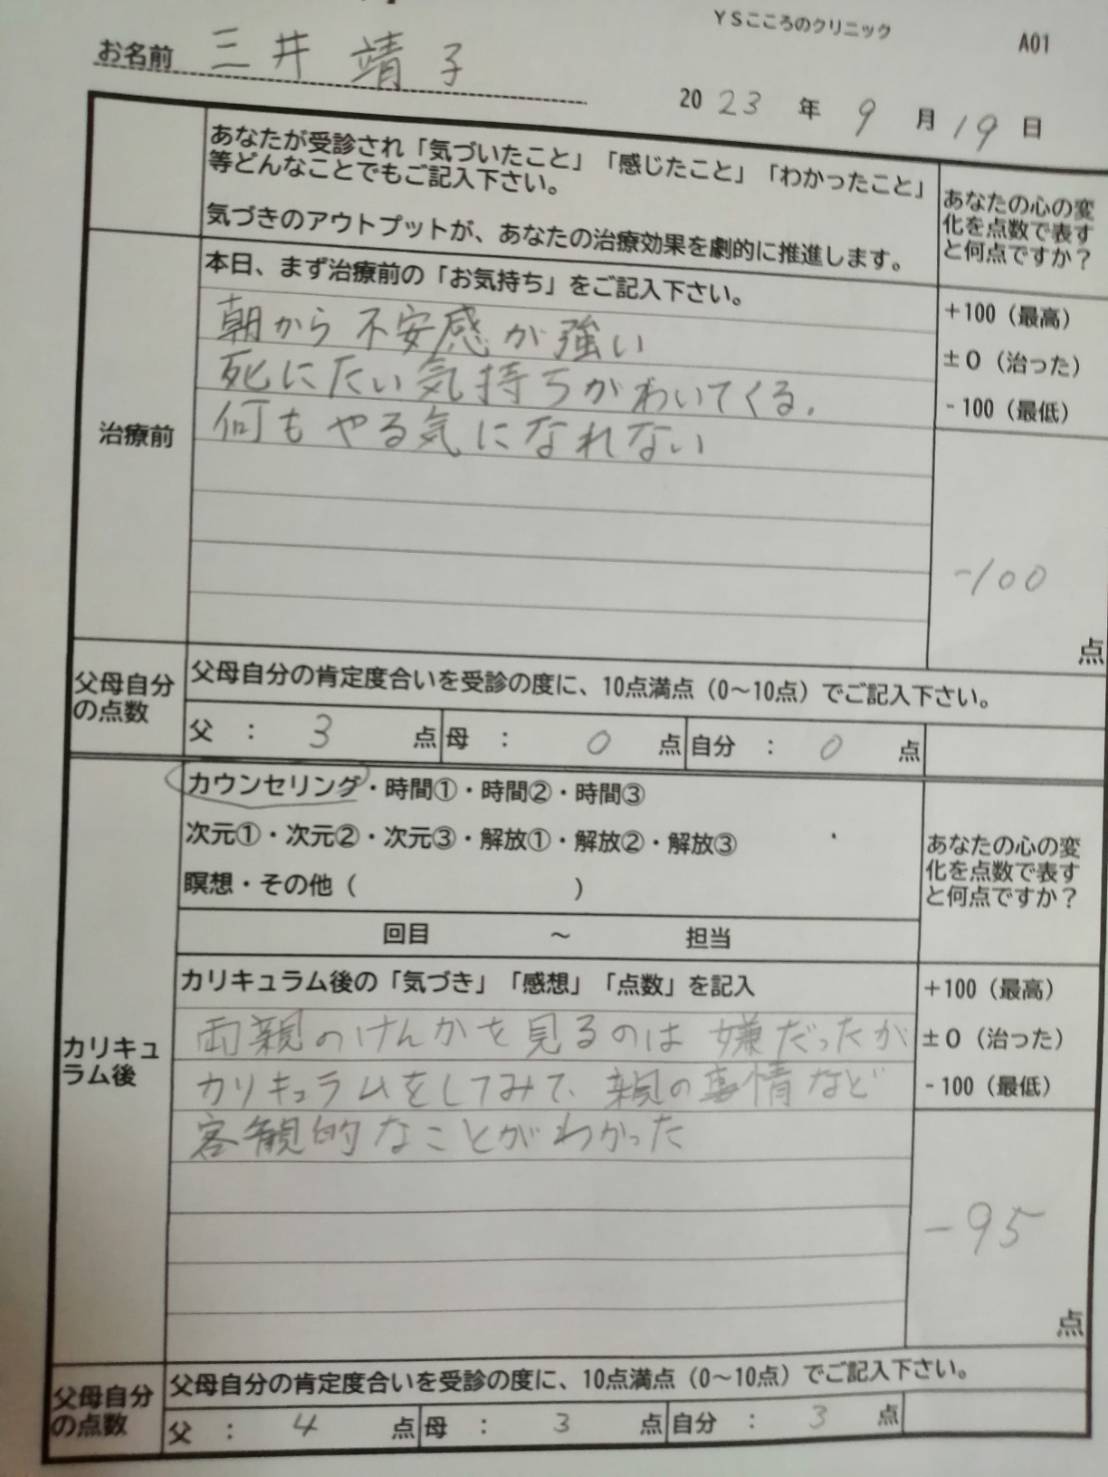 YSこころのクリニック
A01
お名前 三井 靖子
2023年9月19日
あなたが受診され「気づいたこと」「感じたこと」「わかったこと」
等どんなことでもご記入下さい。
気づきのアウトプットが、あなたの治療効果を劇的に推進します。
あなたの心の変
化を点数で表す
と何点ですか？
治療前
本日、まず治療前の「お気持ち」をご記入下さい。
朝から不安感が強い
死にたい気持ちがわいてくる.
何もやる気になれない
+100（最高）
±0（治った）
-100（最低）
-100
点
父母自分
の点数
父母自分の肯定度合いを受診の度に、10点満点（0～10点）でご記入下さい。
父：3点 母：0点 自分：0点
カリキュ
ラム後
カウンセリング・時間①・時間②・時間③
次元①・次元②・次元③・解放①・解放②・解放③
瞑想・その他（ ）
回目 ～ 担当
あなたの心の変
化を点数で表す
と何点ですか？
カリキュラム後の「気づき」「感想」「点数」を記入
両親のけんかを見るのは嫌だったが
カリキュラムをしてみて、親の事情など
客観的なことがわかった
+100（最高）
±0（治った）
-100（最低）
-95
点
父母自分
の点数
父母自分の肯定度合いを受診の度に、10点満点（0～10点）でご記入下さい。
父：4点 母：3点 自分：3点